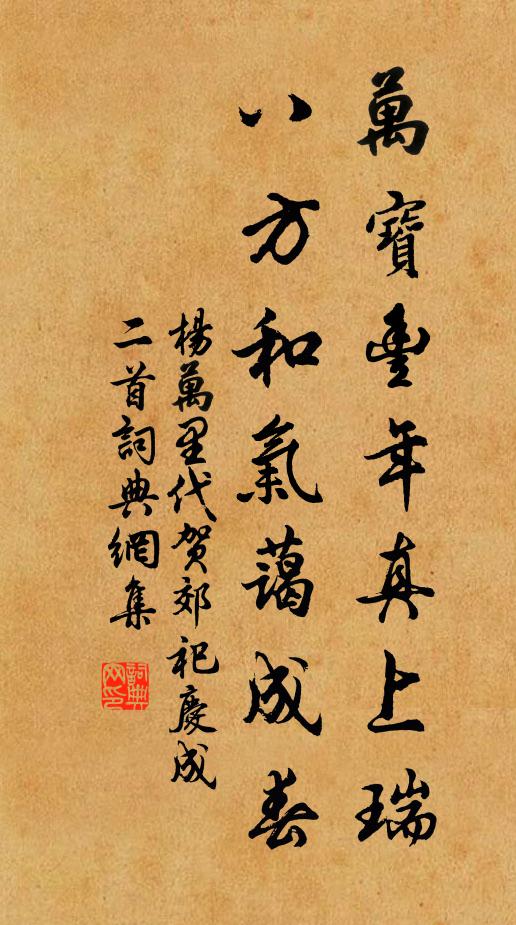 萬寶豐年真上瑞
八方和氣藹成春
楊萬里代賀郊祀慶成
二首詞典網集
詞典网印